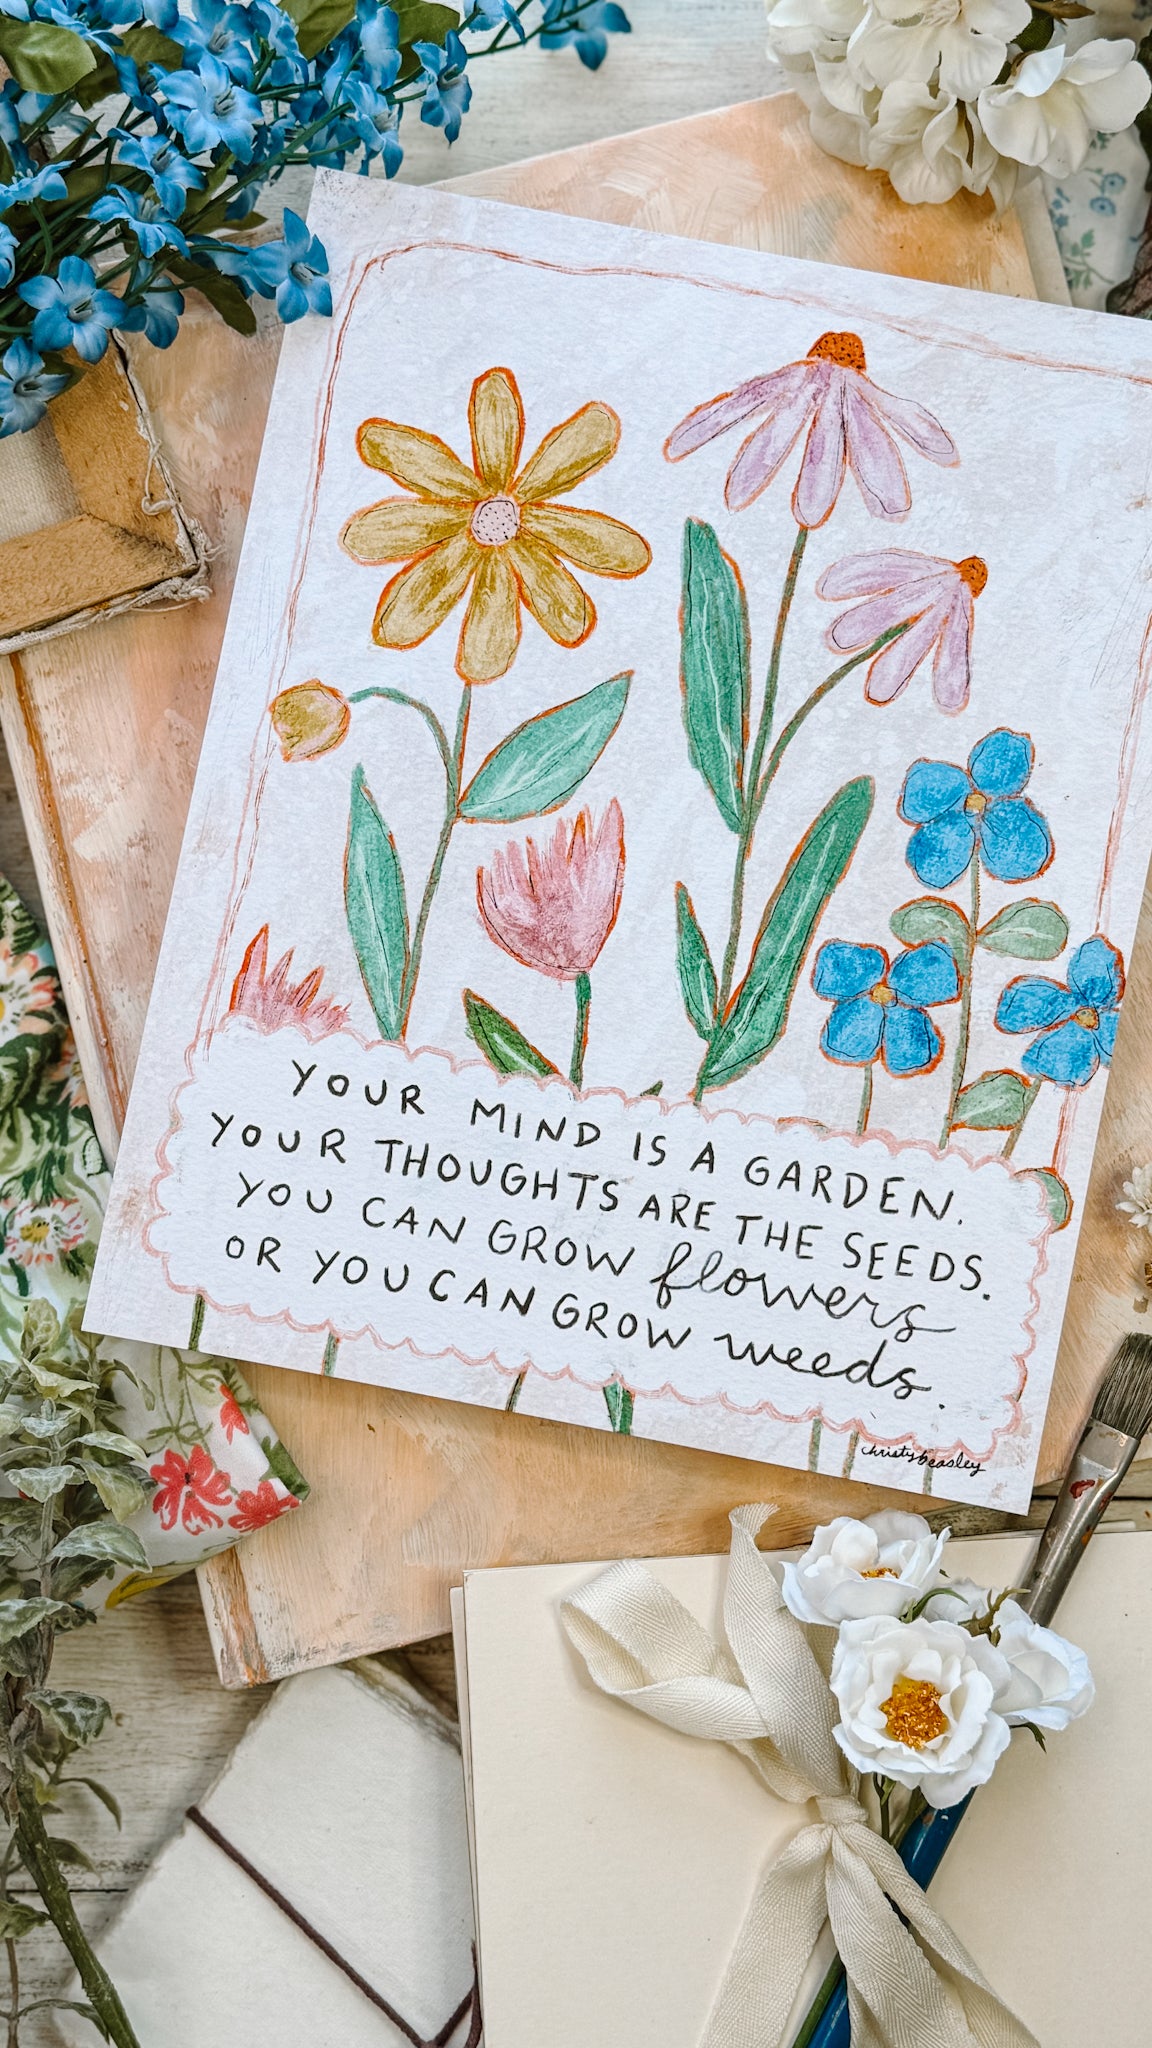 YOUR MIND IS A GARDEN.
YOUR THOUGHTS ARE THE SEEDS.
YOU CAN GROW flowers
OR YOU CAN GROW weeds.
christybeasley